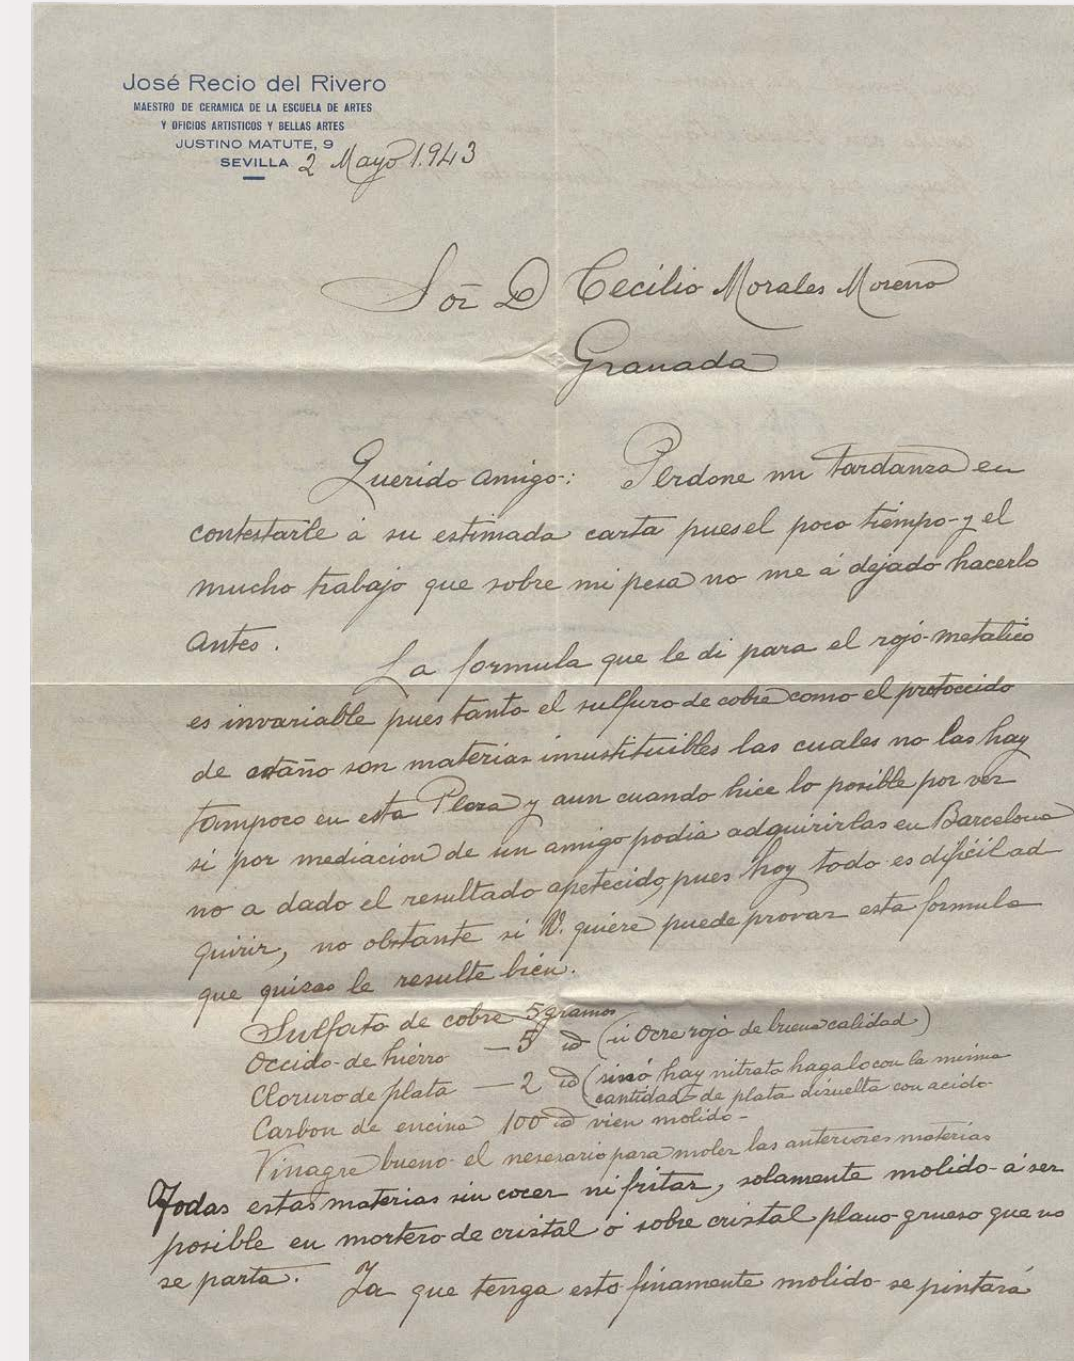 José Recio del Rivero
MAESTRO DE CERAMICA DE LA ESCUELA DE ARTES
Y OFICIOS ARTISTICOS Y BELLAS ARTES
JUSTINO MATUTE, 9
SEVILLA 2 Mayo 1.943
Sor D Cecilio Morales Moreno
Granada
Querido amigo: Perdone mi tardanza en
contestarle á su estimada carta puesel poco tiempo y el
mucho trabajo que sobre mi pesa no me á dejado hacerlo
antes.
La formula que le di para el rojo metalico
es invariable pues tanto el sulfuro de cobre como el protoccido
de estaño son materias insustituibles las cuales no las hay
tampoco en esta Plaza y aun cuando hice lo posible por ver
si por mediacion de un amigo podia adquirirlas en Barcelona
no a dado el resultado apetecido, pues hoy todo es dificil ad
quirir, no obstante si V. quiere puede provar esta formula
que quizas le resulte bien.
Sulfato de cobre 5 gramos
Occido de hierro — 5 id (ú Ocre rojo de buena calidad)
Cloruro de plata — 2 id (sinó hay nitrato hagalo con la misma
cantidad de plata disuelta con acido
Carbon de encina 100 id vien molido -
Vinagre bueno el nesesario para moler las anteriores materias
Todas estas materias sin cocer ni fritar, solamente molido á ser
posible en mortero de cristal ó sobre cristal plano grueso que no
se parta. Ya que tenga esto finamente molido se pintará